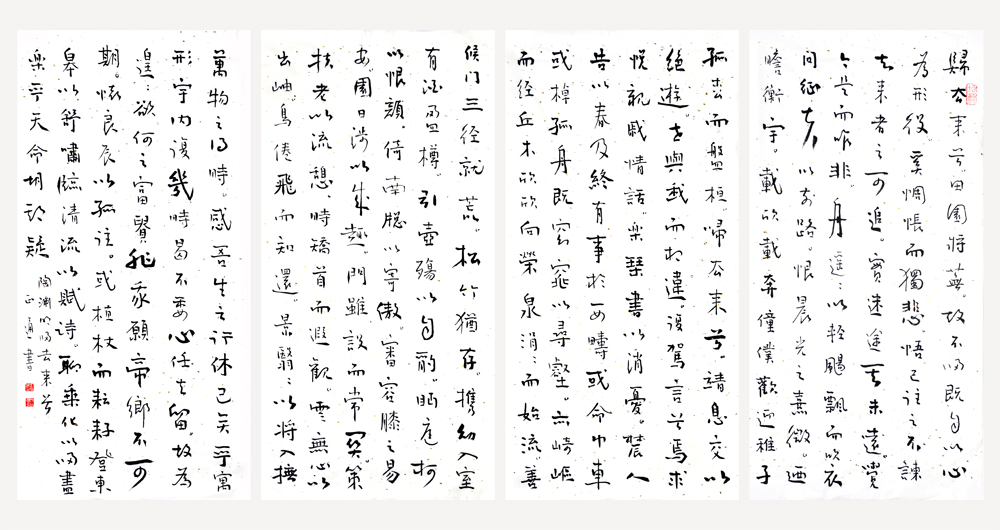 歸去来兮。田園将蕪。故不歸既自以心
為形役奚惆悵而獨悲。悟已往之不諫
知来者之可追。實迷途其未遠。覺
今是而昨非。舟遥〻以輕颺飄而吹衣
問征夫以前路恨晨光之熹微。迺
瞻衡宇。載欣載奔僮僕歡迎稚子
孤松而盤桓。歸去来兮。請息交以
絕遊。世與我而相違。復駕言兮焉求
悦親戚情話。樂琴書以消憂。農人
告以春及終有事於西疇或命巾車
或棹孤舟既窈窕以尋壑。亦崎嶇
而经丘木欣欣向榮泉涓〻而始流善
候门三径就荒。松竹猶存。携幼入室
有酒盈樽。引壺殤以自酌。眄庭柯
以怡顏。倚南牕以寄傲。審容膝之易
安園日涉以成趣。門雖設而常関。策
扶老以流憩。時矯首而遐觀。雲無心以
出岫。鳥倦飛而知還。景翳〻以将入撫
萬物之得時。感吾生之行休已矣乎寓
形宇内復幾時曷不委心任去留。故為
遑〻欲何之富貴非吾願帝鄉不可
期。懷良辰以孤往。或植杖而耘耔登東
皋以舒嘯臨清流以賦诗。聊乘化以歸盡
樂乎天命胡疑
陶渊明歸去来兮
正通書